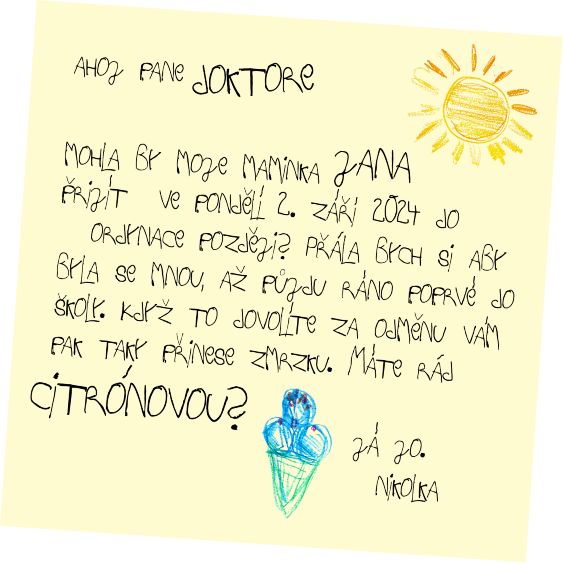 AHOJ PANE DOKTORE
MOHLA BY MOJE MAMINKA JANA
PŘIJÍT VE PONDĚLÍ 2. ZÁŘÍ 2024 DO
ORDYNACE POZDĚJI? PŘÁLA BYCH SI ABY
BYLA SE MNOU, AŽ PŮJDU RÁNO POPRVÉ DO
ŠKOLY. KDYŽ TO DOVOLÍTE ZA ODMĚNU VÁM
PAK TAKY PŘINESE ZMRZKU. MÁTE RÁD
CITRÓNOVOU?
JÁ JO.
NIKOLKA